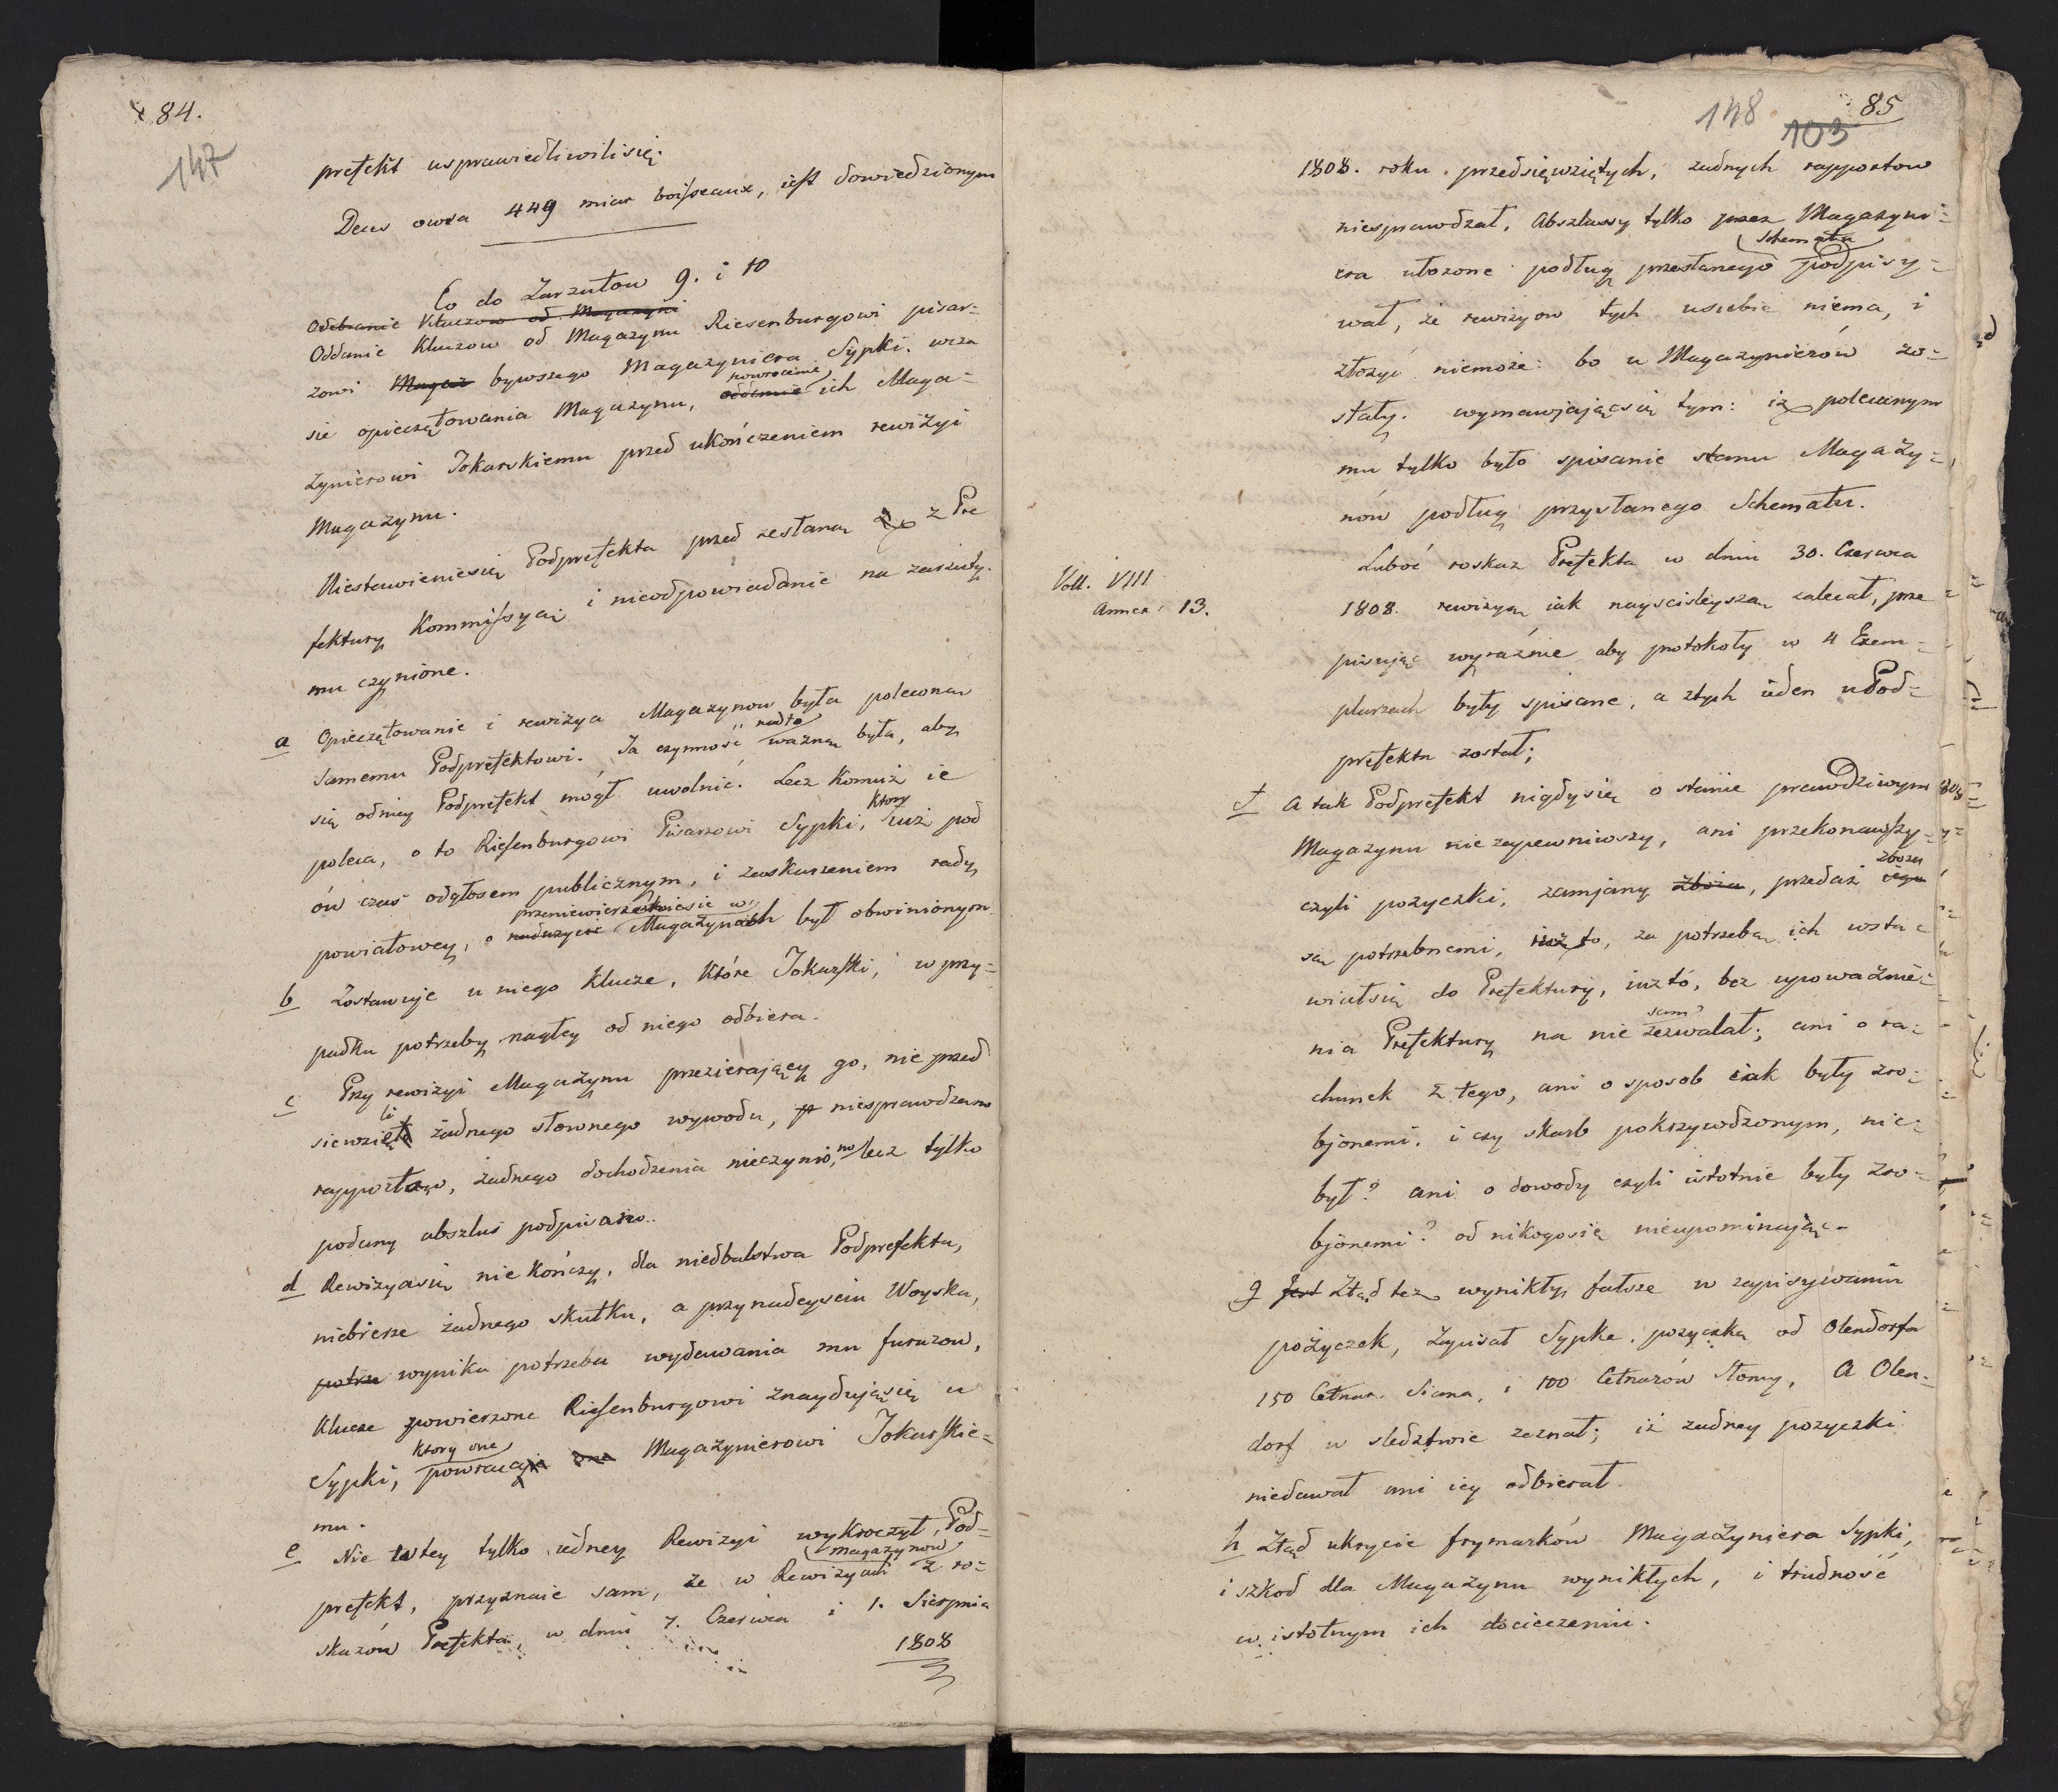 84.
147
prefekt usprawiedliwili się.
Deus owsa 449 miar boisseaux, iest dowiedzionym
Co do Zarzutow 9. i 10
Odebranie Kluczow od Magazyni
Oddanie Kluczow od Magazynu Riesenburgowi pisar=
zowi Magaz bywszego Magazyniera Sypki. wcza
powrocenie
sie opieczętowania Magazynu, oddanie ich Maga=
zynierowi Tokarskiemu przed ukończeniem rewizyi
Magazynu.
Niestawieniesię Podprefekta przed zesłaną z Pre
fektury Kommissyą i nieodpowiadanie na zarzuty
mu czynione.
a Opieczętowanie i rewizya Magazynow była poleconą
nadto
samemu Podprefektowi. Ta czynność ważną była, aby
się odniey Podprefekt mógł uwolnić. Lecz Komuż ie
Ktory
poleca, o to Riesenburgowi Pisarzowi Sypki, iuż pod
ów czas odgłosem publicznym, i zaskarzeniem rady
przeniewierzeniesie w
powiatowey, o nadużycie Magazynach był obwinionym
b Zostawuje u niego Klucze, Które Tokarski, w przy=
padku potrzeby nagłey od niego odbiera.
c Przy rewizyi Magazynu przezierający go, nie przed
li
siewzięto żadnego słownego wywodu, niesprawdzano
rapportow, żadnego dochodzenia nieczynio,no lecz tylko
podany abszlus podpisano.
d Rewizyasię nie Kończy, dla niedbalstwa Podprefekta,
niebierze żadnego skutku, a przy nadeysciu Woyska,
potrze wynika potrzeba wydawania mu furazow,
Klucze powierzone Riesenburgowi znayduiąsię u
Ktory one
Sypki, powraca one Magazynierowi Tokarskie=
mu.
e Nie w tey tylko iedney Rewizyi wykroczył Pod=
magazynow
prefekt, przyznaie sam, że w Rewizyach z ro=
skazów Prefekta, w dniu 7. Czerwca i 1. Sierpnia
1808
148
103
85
1808. roku. przedsięwziętych, żadnych rapportow
niesprawdzał, Abszlussy tylko przez Magazyni=
Schematu
era ułozone podług przesłanego podpisy=
wał, że rewizyow tych usiebie niema, i
złożyć niemoże: bo u Magazynierów zo=
stały. wymawjającsię tym: iż polecanym
mu tylko było spisanie stanu Magazy=
nów podług przysłanego Schematu.
Voll. VIII
Annex. 13.
Luboć roskaz Prefekta w dniu 30. Czerwca
1808. rewizyą iak nayscisleyszą zalecał, prze
pisując wyraźnie aby protokoły w 4 Exem=
plarzach były spisane, a ztych ieden u Pod=
prefekta został;
f A tak Podprefekt nigdysię o stanie prawdziwym
Magazynu nie zapewniwszy, ani przekonawszy=
zboza
czyli pozyczki, zamjany zboża, przedaż iego
są potrzebnemi, iuż to, za potrzebą ich wsta=
wiałsię do Prefektury, iuzto, bez upoważnie=
sam
nia Prefektury na nie zezwalał; ani o ra=
chunek z tego, ani o sposob iak były zro=
bjonemi, i czy skarb pokrzywdzonym, nie
był? ani o dowody czyli istotnie były zro=
bjonemi? od nikogosię nieupominając.
g Jest Ztąd też wynikły fałsze w zapisywaniu
pożyczek, Zapisał Sypke. pozyczkę od Olendorfa
150 Cetnar. Siana, i 100 Cetnarów Słomy, A Olen=
dorf w sledztwie zeznał; iż zadney pozyczki
niedawał ani iey odbierał.
h Ztąd ukrycie frymarków Magazyniera Sypki,
i szkod dla Magazynu wynikłych, i trudność
w istotnym ich docieczeniu.